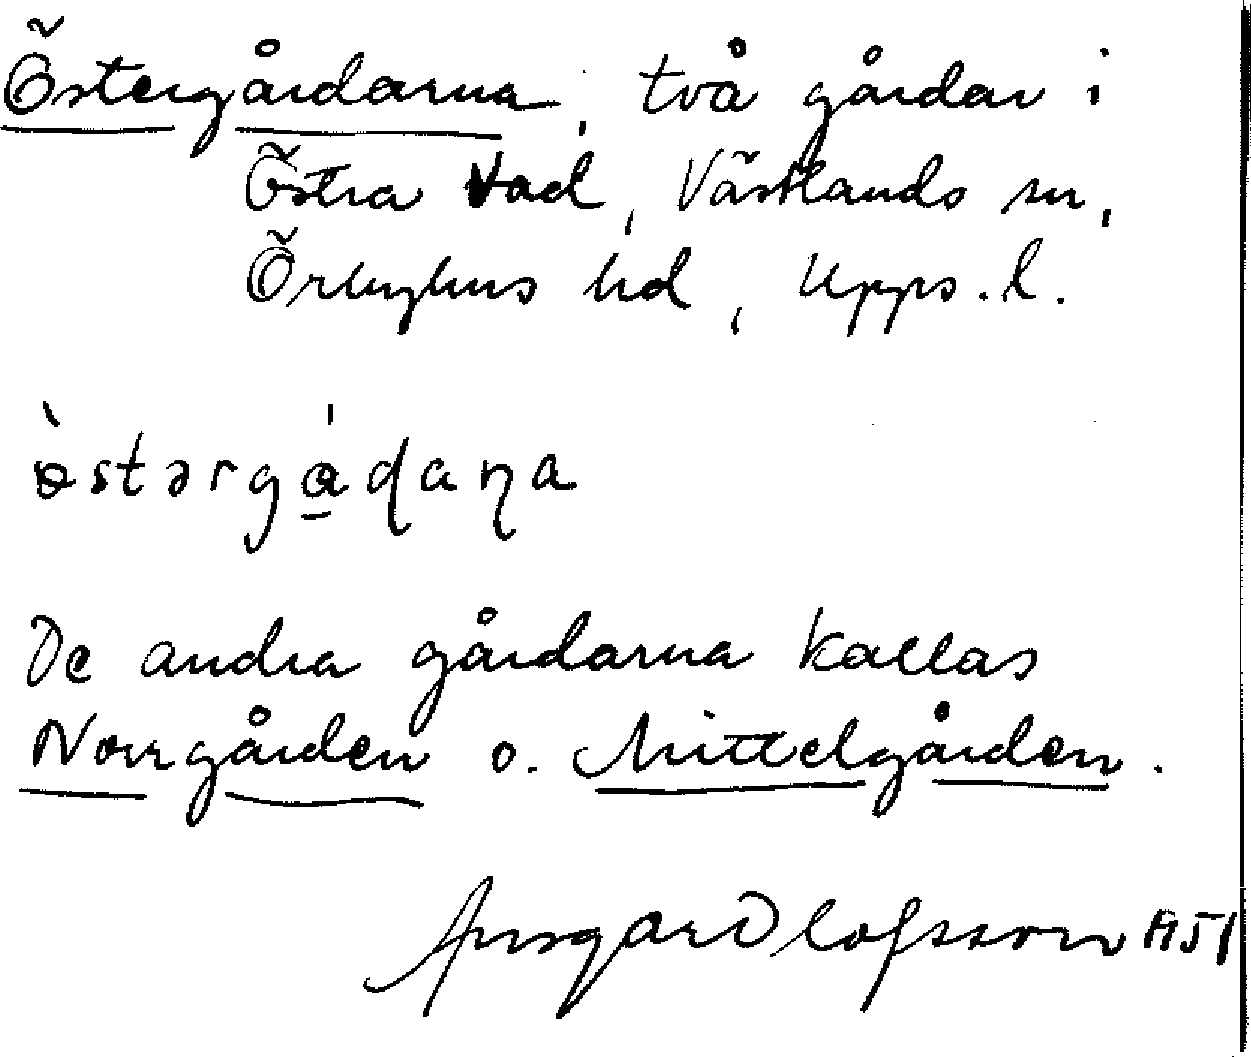 Östergårdarna, två gårdar i
Östra Vad, Västlands sn,
Örbyhus hd, Upps. l.
ö̀stərgá̱ḍaṇa
De andra gårdarna kallas
Norrgården o. Mittelgården.
Ansgar Olofsson 1951